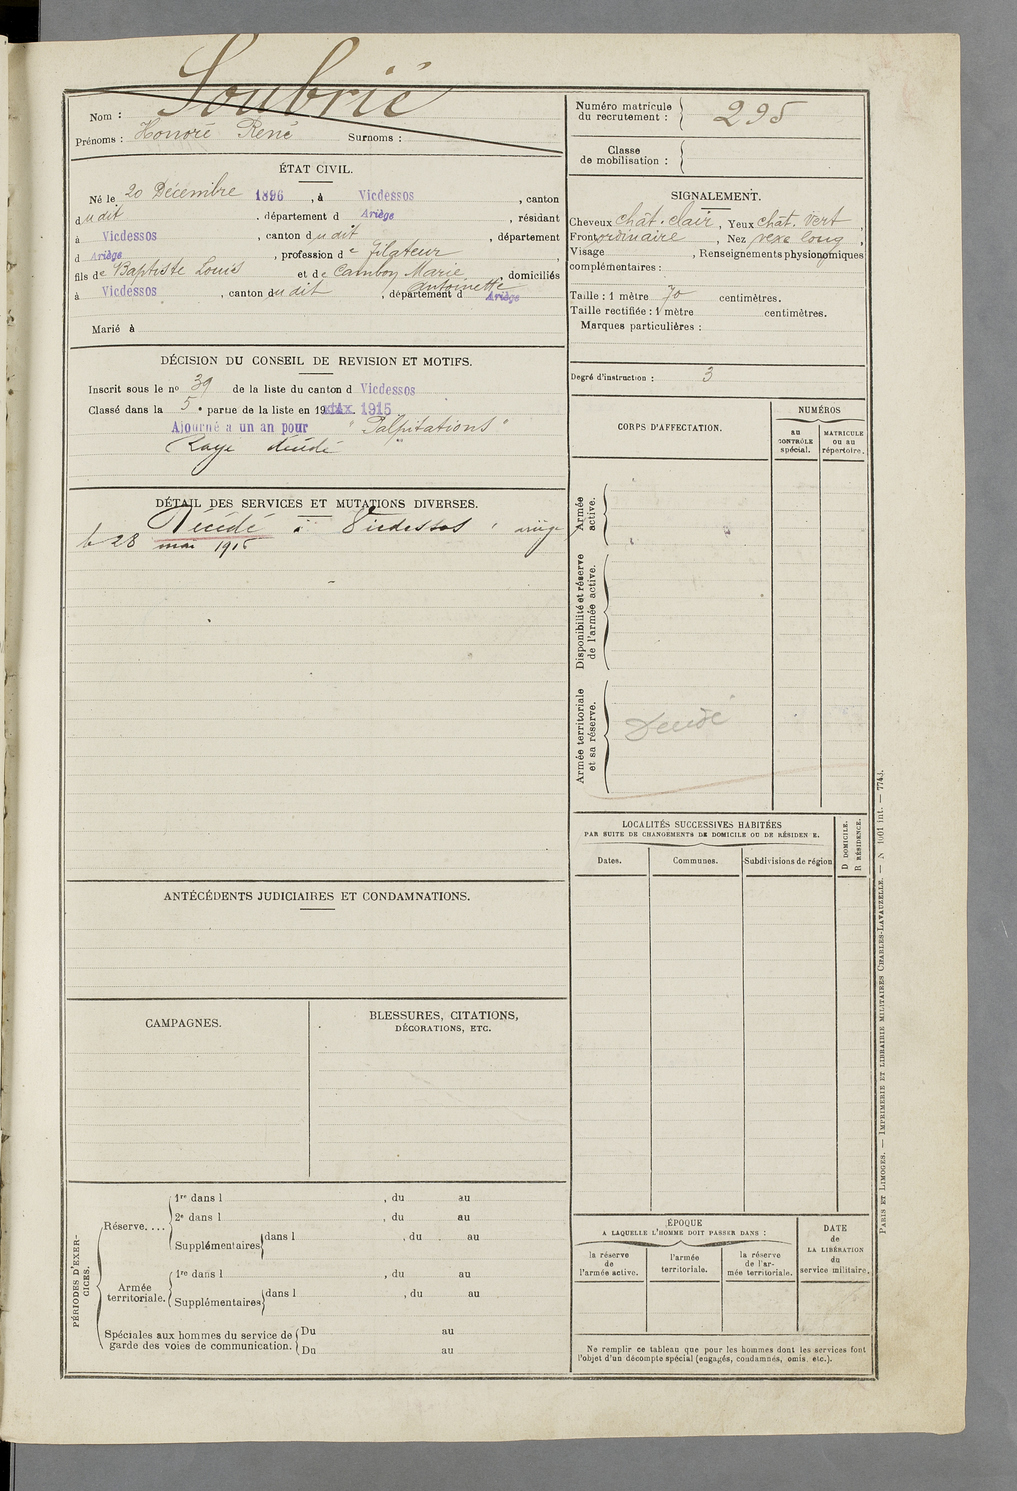 Soubrié
Nom :
Prénoms : Honoré René Surnoms :
Numéro matricule
du recrutement : 295
Classe
de mobilisation :
ÉTAT CIVIL.
Né le 20 Décembre 1896, à Vicdessos, canton
dudit, département d Ariège, résidant
à Vicdessos, canton dudit, département
d Ariège, profession de filateur,
fils de Baptiste Louis et de Cambon Marie Antoinette, domiciliés
à Vicdessos, canton dudit, département d Ariège
Marié à
SIGNALEMENT.
Cheveux chât. clair, Yeux chât. vert,
Front ordinaire, Nez vexe long,
Visage, Renseignements physionomiques
complémentaires :
Taille : 1 mètre 70 centimètres.
Taille rectifiée : 1 mètre centimètres.
Marques particulières :
Degré d'instruction : 3
DÉCISION DU CONSEIL DE REVISION ET MOTIFS.
Inscrit sous le no 39 de la liste du canton d Vicdessos
Classé dans la 5e partie de la liste en 19 1915
Ajourné a un an pour "Palpitations"
Rayé décédé
DÉTAIL DES SERVICES ET MUTATIONS DIVERSES.
Décédé à Vicdessos, ariège
le 28 mai 1915
CORPS D'AFFECTATION.
NUMÉROS
au
CONTRÔLE
spécial.
MATRICULE
ou au
répertoire.
Armée
active.
Disponibilité et réserve
de l'armée active.
Armée territoriale
et sa réserve.
Décédé
LOCALITÉS SUCCESSIVES HABITÉES
PAR SUITE DE CHANGEMENTS DE DOMICILE OU DE RÉSIDEN E.
D DOMICILE.
R RÉSIDENCE.
Dates.
Communes.
Subdivisions de région
ANTÉCÉDENTS JUDICIAIRES ET CONDAMNATIONS.
CAMPAGNES.
BLESSURES, CITATIONS,
DÉCORATIONS, ETC.
PÉRIODES D'EXER-
CICES.
Réserve....
1re dans l, du au
2e dans l, du au
Supplémentaires dans l, du au
Armée
territoriale.
1re dans l, du au
Supplémentaires dans l, du au
Spéciales aux hommes du service de
garde des voies de communication.
Du au
Du au
ÉPOQUE
A LAQUELLE L'HOMME DOIT PASSER DANS :
la réserve
de
l'armée active.
l'armée
territoriale.
la réserve
de l'ar-
mée territoriale.
DATE
de
LA LIBÉRATION
du
service militaire.
Ne remplir ce tableau que pour les hommes dont les services font
l'objet d'un décompte spécial (engagés, condamnés, omis, etc.).
PARIS ET LIMOGES. — IMPRIMERIE ET LIBRAIRIE MILITAIRES CHARLES-LAVAUZELLE. — N 1001 int. — 7743.